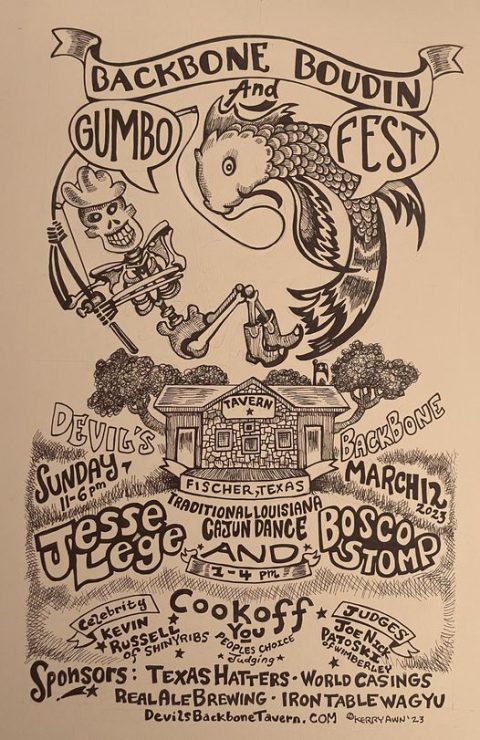 BACKBONE BOUDIN
And
GUMBO FEST
TAVERN
DEVIL'S BACKBONE
FISCHER, TEXAS
SUNDAY
11-6 pm
MARCH 12
2023
TRADITIONAL LOUISIANA
CAJUN DANCE
Jesse Lége
AND
BOSCO STOMP
1-4 pm
Celebrity JUDGES
KEVIN RUSSELL
of SHINYRIBS
CookoFF
YOU
PEOPLES CHOICE
Judging
JOE NICK PATOSKI
of WIMBERLEY
SPONSORS: TEXAS HATTERS · WORLD CASINGS
REAL ALE BREWING · IRON TABLE WAGYU
DevilsBackboneTavern.COM ©KERRY AWN '23